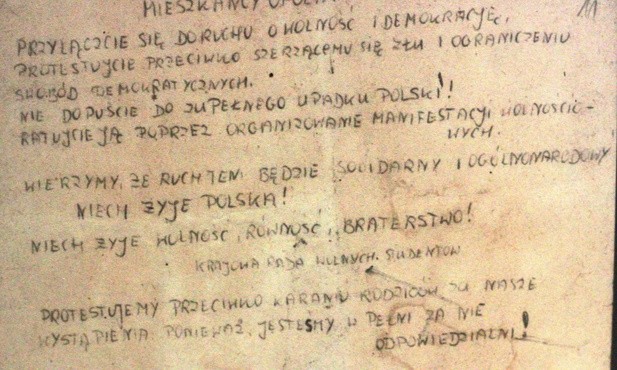 MIESZKAŃCY OPOLA!
11
PRZYŁĄCZCIE SIĘ DO RUCHU O WOLNOŚĆ I DEMOKRACJĘ,
PROTESTUJCIE PRZECIWKO SZERZĄCEMU SIĘ ZŁU I OGRANICZENIU
SWOBÓD DEMOKRATYCZNYCH.
NIE DOPUŚCIE DO ZUPEŁNEGO UPADKU POLSKI!!
RATUJCIE JĄ POPRZEZ ORGANIZOWANIE MANIFESTACJI WOLNOŚCIO-
WYCH.
WIERZYMY, ŻE RUCH TEN BĘDZIE SOLIDARNY I OGÓLNONARODOWY
NIECH ŻYJE POLSKA!
NIECH ŻYJE WOLNOŚĆ, RÓWNOŚĆ, BRATERSTWO!
KRAJOWA RADA WOLNYCH STUDENTÓW
PROTESTUJEMY PRZECIWKO KARANIU RODZICÓW ZA NASZE
WYSTĄPIENIA PONIEWAŻ, JESTEŚMY W PEŁNI ZA NIE
ODPOWIEDZIALNI!